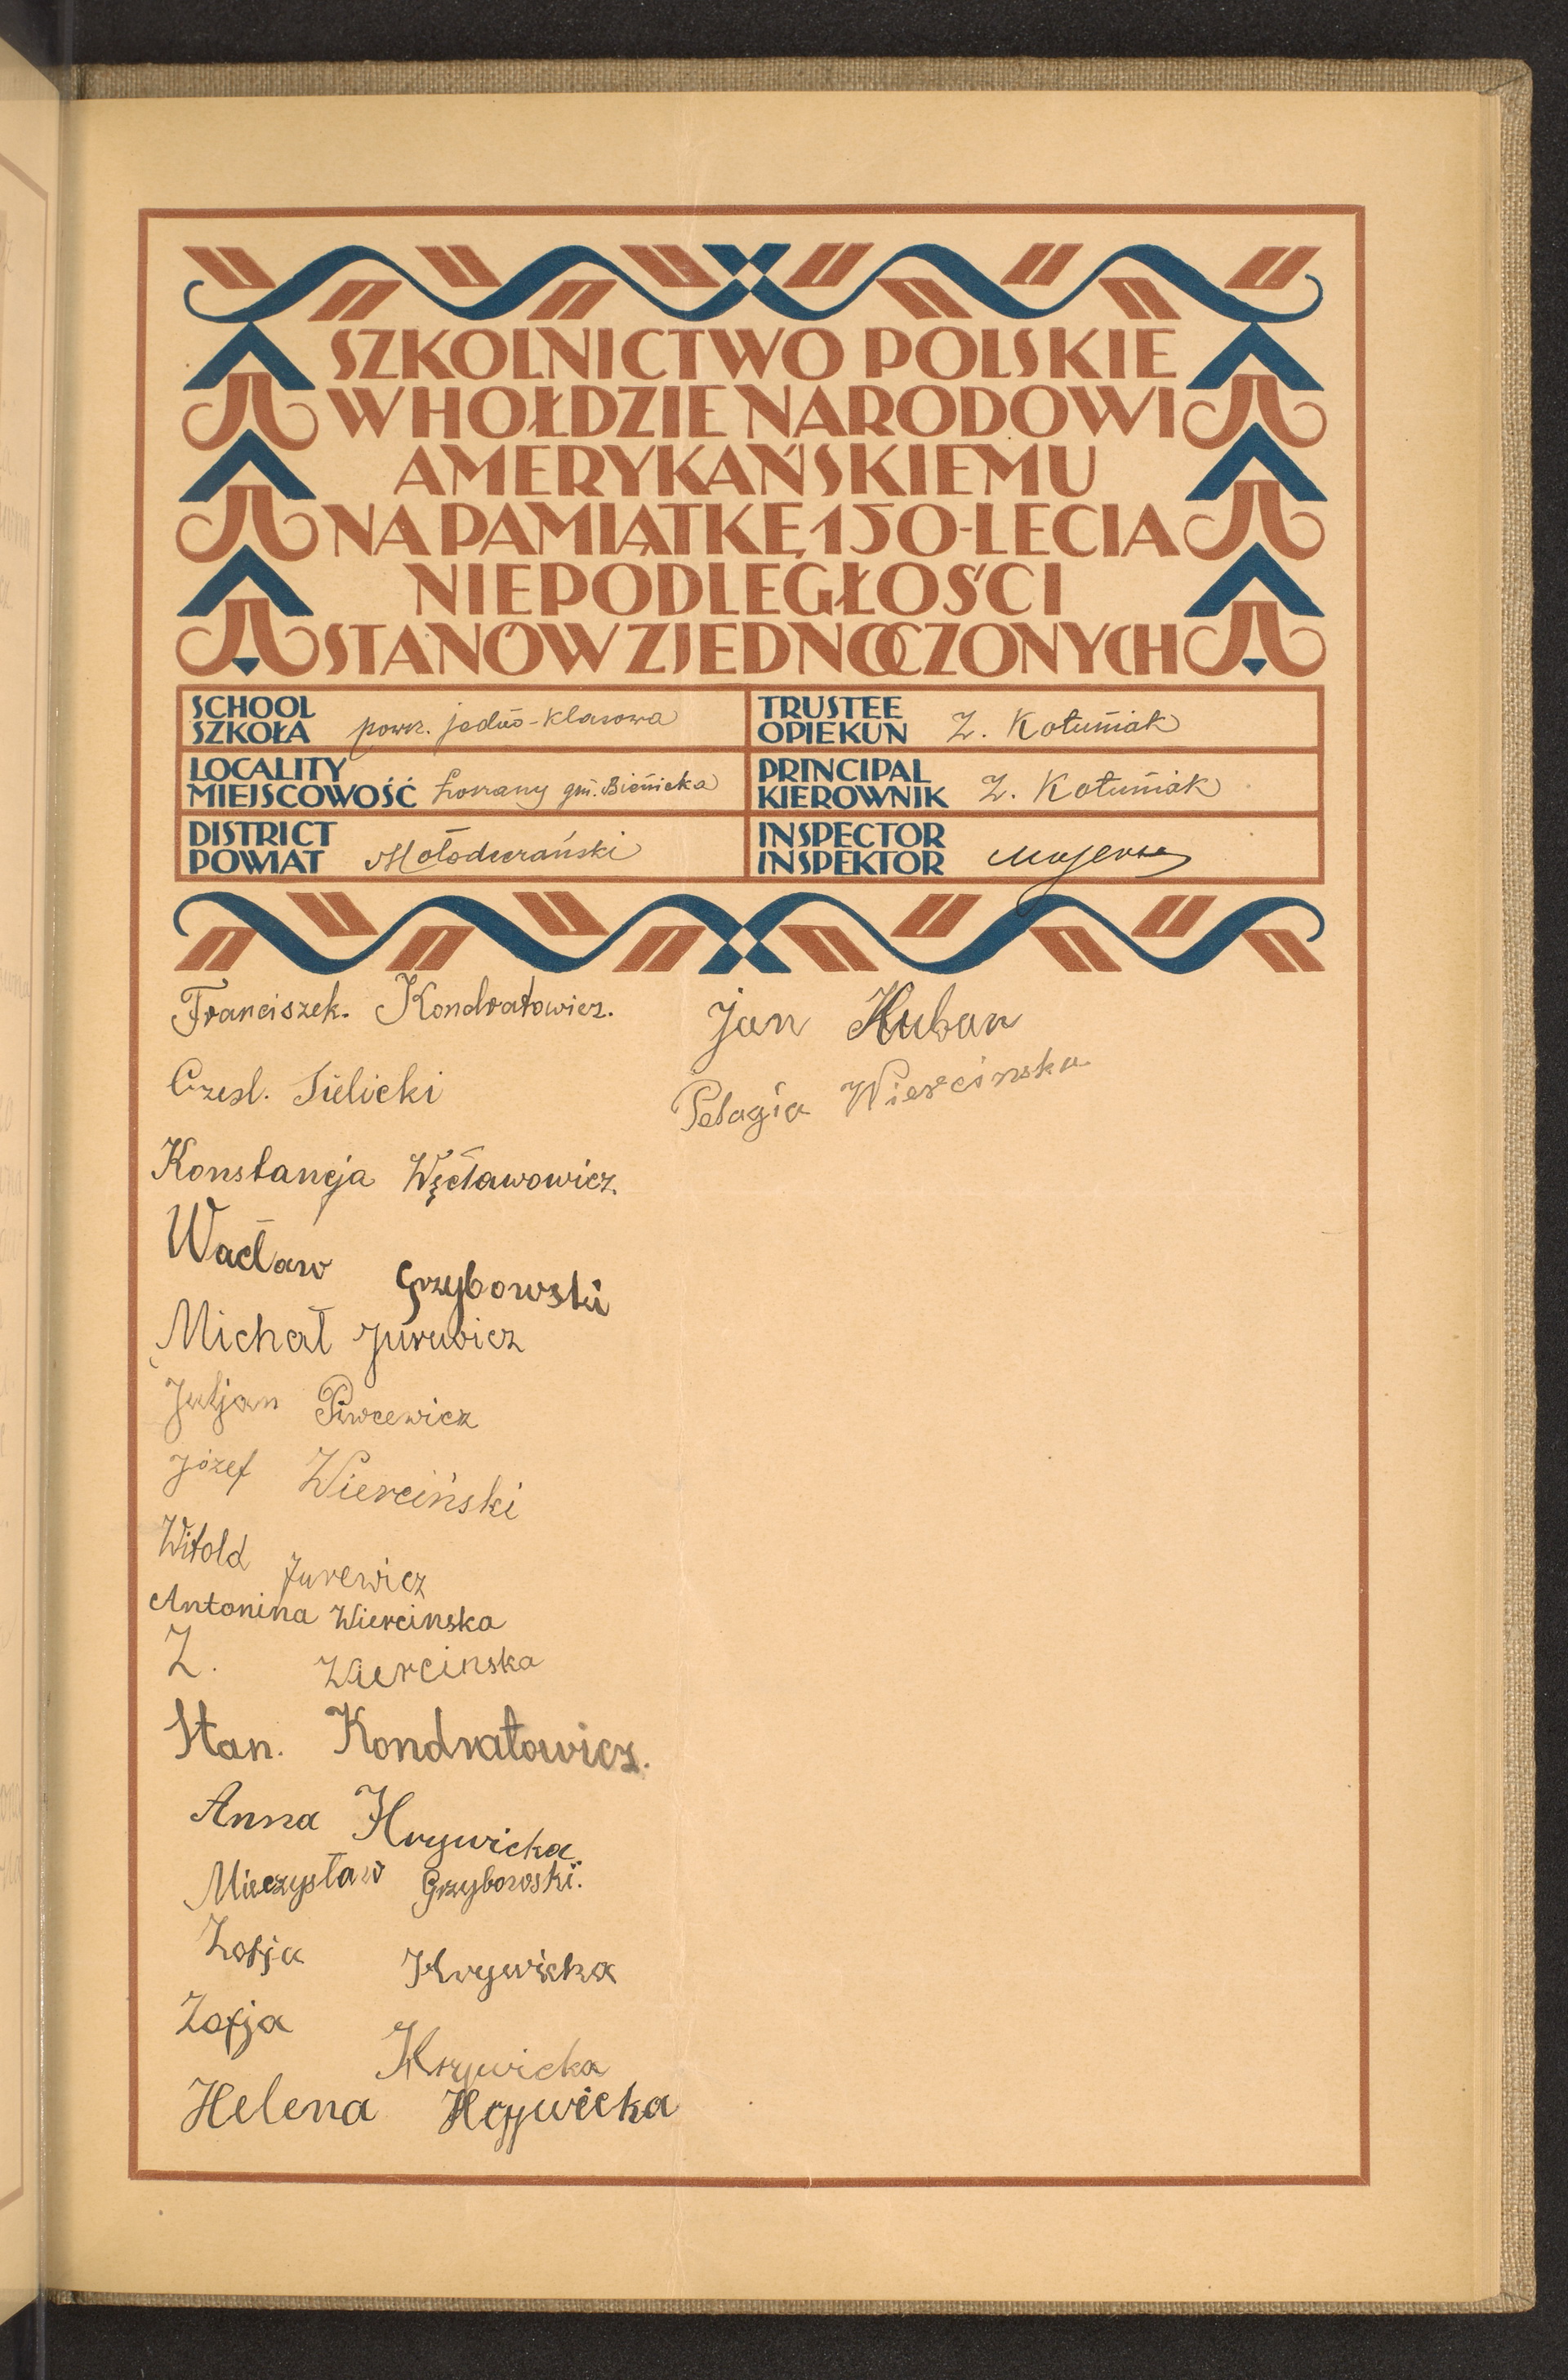 SZKOLNICTWO POLSKIE
W HOŁDZIE NARODOWI
AMERYKAŃSKIEMU
NA PAMIĄTKĘ 150-LECIA
NIEPODLEGŁOŚCI
STANÓW ZJEDNOCZONYCH
SCHOOL
SZKOŁA powsz. jedno-klasowa
TRUSTEE
OPIEKUN Z. Kołuniak
LOCALITY
MIEJSCOWOŚĆ gm. Bienicka
PRINCIPAL
KIEROWNIK Z. Kołuniak
DISTRICT
POWIAT Mołodeczański
INSPECTOR
INSPEKTOR
Franciszek. Kondratowicz.
Czesl. Sielicki
Konstancja Węcławowicz.
Wacław Grzybowski
Michał Jurewicz
Juljan
Józef Wierciński
Witold Jurewicz
Antonina Wiercinska
Z. Wiercinska
Stan. Kondratowicz.
Anna Hrywicka
Mieczysław Grzybowski.
Zofja Krywicka
Zofja Krywicka
Helena
Jan Huban
Pelagia Wiercinska